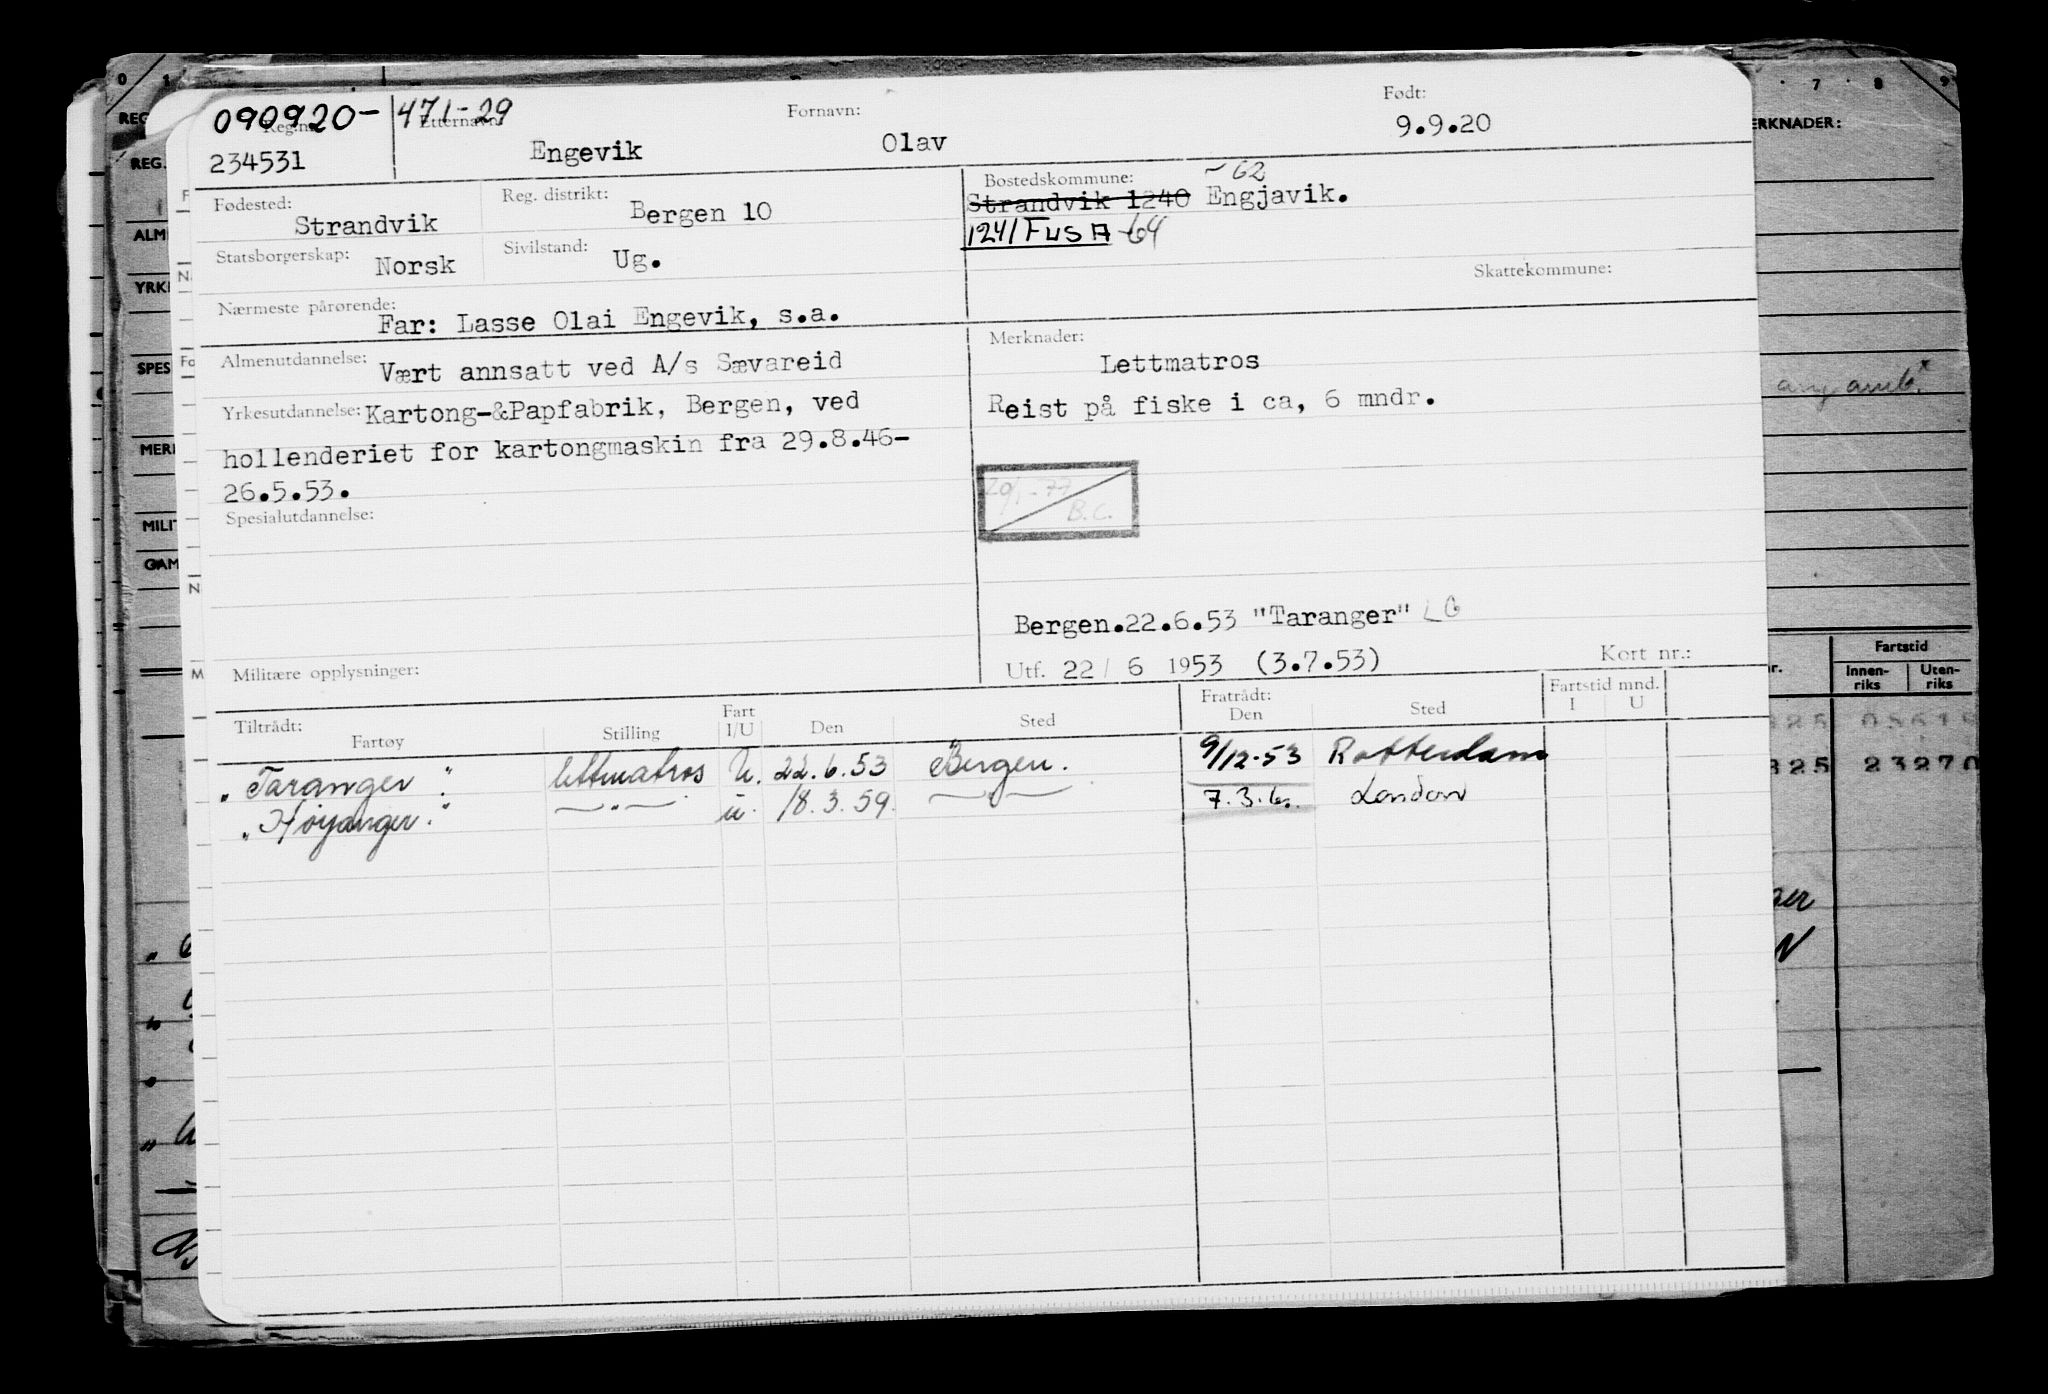 090920- 471-29
Reg.nr. Etternavn: Fornavn: Født:
234531 Engevik Olav 9.9.20
Fødested: Strandvik Reg. distrikt: Bergen 10 Bostedskommune: -62
Strandvik 1240 Engjavik.
1241 FUSA -64
Statsborgerskap: Norsk Sivilstand: Ug.
Skattekommune:
Nærmeste pårørende: Far: Lasse Olai Engevik, s.a.
Almenutdannelse: Vært annsatt ved A/s Sævareid
Yrkesutdannelse: Kartong-&Papfabrik, Bergen, ved
hollenderiet for kartongmaskin fra 29.8.46-
26.5.53.
Spesialutdannelse:
Merknader:
Lettmatros
Reist på fiske i ca, 6 mndr.
20/1-77
B.C.
Bergen.22.6.53 "Taranger" LG
Militære opplysninger:
Utf. 22/ 6 1953 (3.7.53) Kort nr.:
Tiltrådt: Fartøy Stilling Fart I/U Den Sted Fratrådt: Den Sted Fartstid mnd. I U
"Taranger" lettmatros U. 22.6.53 Bergen. 9/12-53 Rotterdam
"Høyanger." —"— u. 18.3.59. —"— London
0 1 7 8 9
REG.
ALM
YRK
SPES
MER
MILIT
GAM
MERKNADER:
Fartstid
Innen-
riks
Uten-
riks
23270